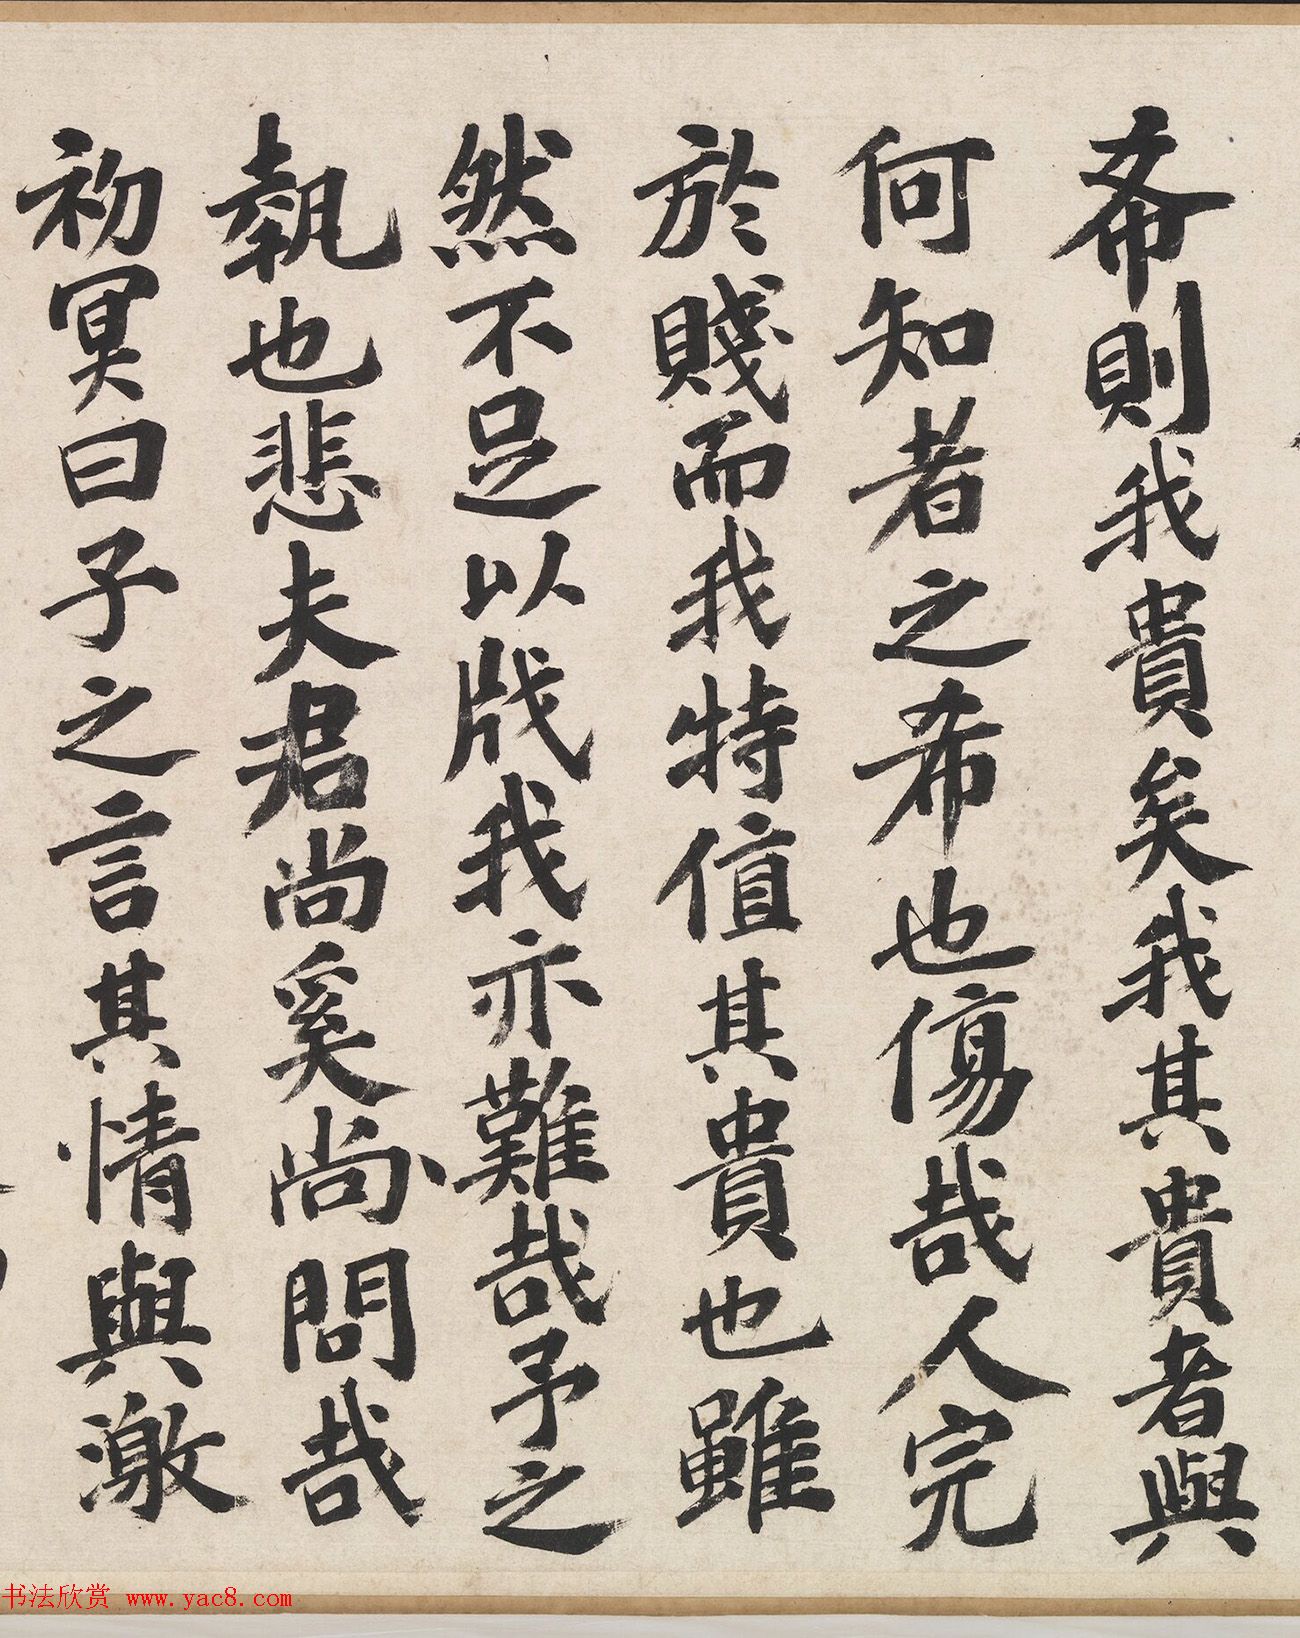 希則我貴矣我其貴者與
何知者之希也傷哉人完
於賤而我特值其貴也雖
然不足以戕我亦難哉予之
執也悲夫君尚奚尚問哉
初冥曰子之言其情與激
书法欣赏 www.yac8.com